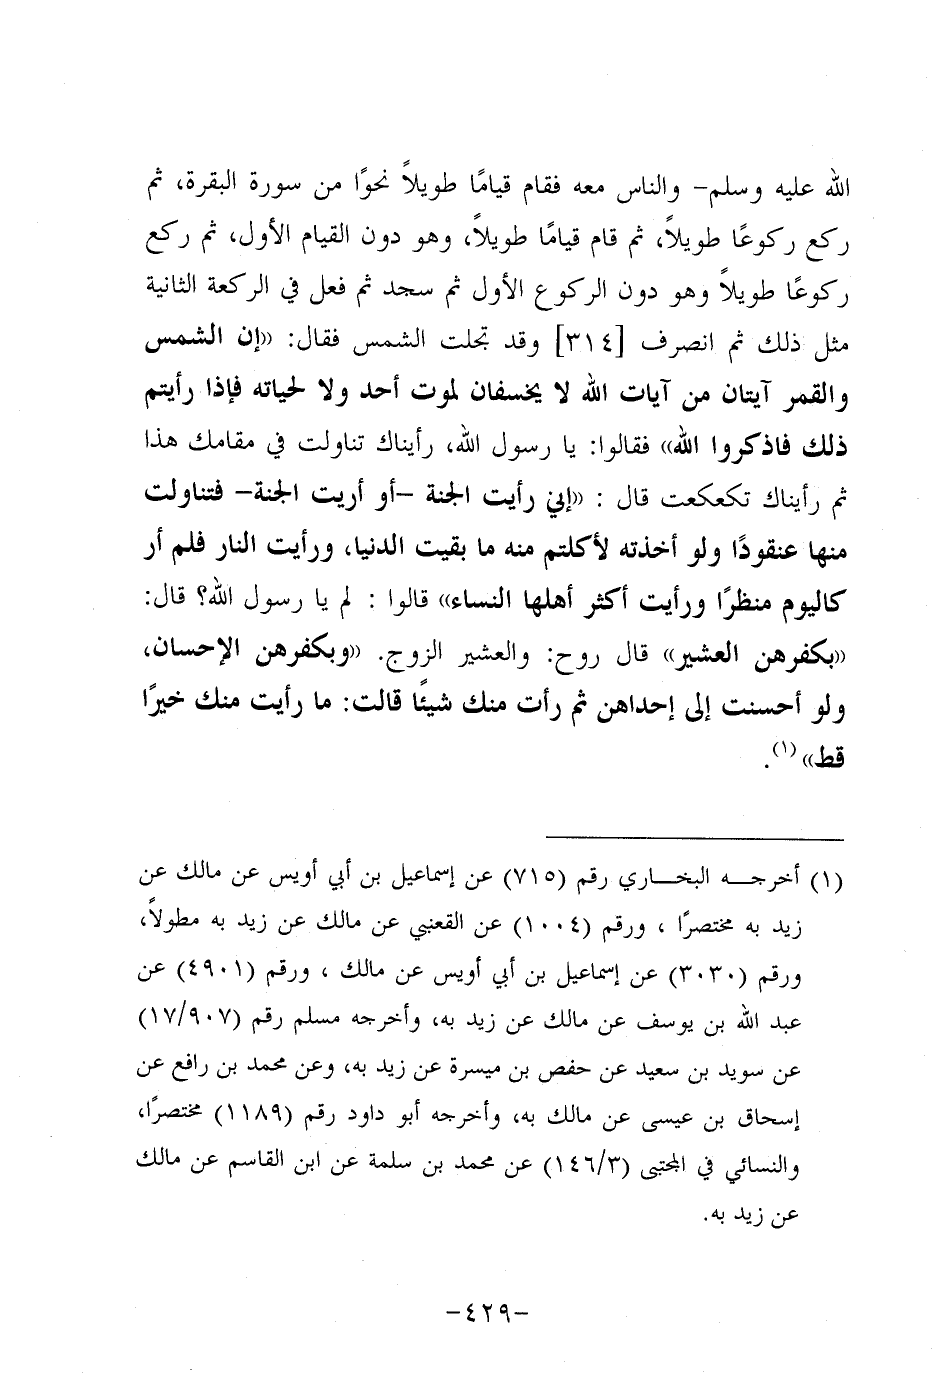 الله عليه وسلم- والناس معه فقام قيامًا طويلاً نحوًا من سورة البقرة، ثم
ركع ركوعًا طويلاً، ثم قام قيامًا طويلاً، وهو دون القيام الأول، ثم ركع
ركوعًا طويلاً وهو دون الركوع الأول ثم سجد ثم فعل في الركعة الثانية
مثل ذلك ثم انصرف [٣١٤] وقد تجلت الشمس فقال: «إن الشمس
والقمر آيتان من آيات الله لا يخسفان لموت أحد ولا لحياته فإذا رأيتم
ذلك فاذكروا الله» فقالوا: يا رسول الله، رأيناك تناولت في مقامك هذا
ثم رأيناك تكعكعت قال : «إني رأيت الجنة -أو أريت الجنة- فتناولت
منها عنقودًا ولو أخذته لأكلتم منه ما بقيت الدنيا، ورأيت النار فلم أر
كاليوم منظرًا ورأيت أكثر أهلها النساء» قالوا : لم يا رسول الله؟ قال:
«بكفرهن العشير» قال روح: والعشير الزوج. «وبكفرهن الإحسان،
ولو أحسنت إلى إحداهن ثم رأت منك شيئًا قالت: ما رأيت منك خيرًا
قط» (١).
(١) أخرجـــه البخـــاري رقم (٧١٥) عن إسماعيل بن أبي أويس عن مالك عن
زيد به مختصرًا ، ورقم (١٠٠٤) عن القعنبي عن مالك عن زيد به مطولاً،
ورقم (٣٠٣٠) عن إسماعيل بن أبي أويس عن مالك ، ورقم (٤٩٠١) عن
عبد الله بن يوسف عن مالك عن زيد به، وأخرجه مسلم رقم (١٧/٩٠٧)
عن سويد بن سعيد عن حفص بن ميسرة عن زيد به، وعن محمد بن رافع عن
إسحاق بن عيسى عن مالك به، وأخرجه أبو داود رقم (١١٨٩) مختصرًا،
والنسائي في المجتبى (١٤٦/٣) عن محمد بن سلمة عن ابن القاسم عن مالك
عن زيد به.
-٤٢٩-